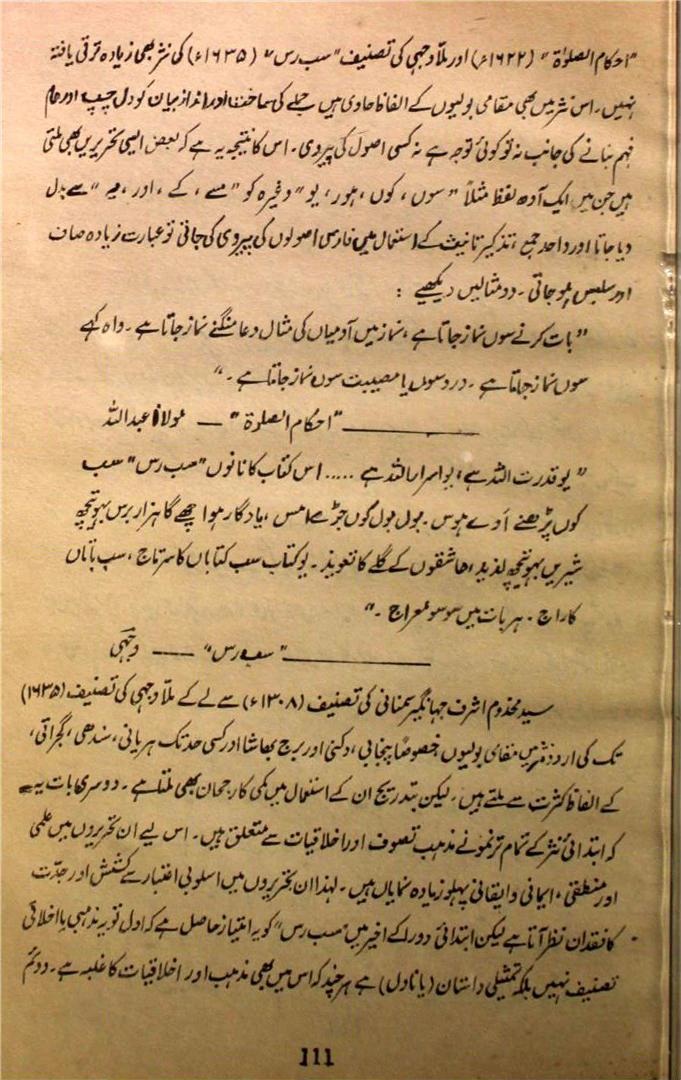 "احکام الصلوٰۃ" (۱۶۲۲ء) اور ملا وجہی کی تصنیف "سب رس" (۱۶۳۵ء) کی نثر بھی زیادہ ترقی یافتہ
نہیں۔ اس نثر میں بھی مقامی بولیوں کے الفاظ حاوی ہیں جملے کی ساخت اور انداز بیان کو دل چسپ اور عام
فہم بنانے کی جانب نہ تو کوئی توجہ ہے نہ کسی اصول کی پیروی۔ اس کا نتیجہ یہ ہے کہ بعض ایسی تحریریں بھی ملتی
ہیں جن میں ایک آدھ لفظ مثلاً "سوں، کوں، ہور، یو" وغیرہ کو "سے، کے، اور، یہ" سے بدل
دیا جاتا اور واحد جمع، تذکیر تانیث کے استعمال میں فارسی اصولوں کی پیروی کی جاتی تو عبارت زیادہ صاف
اور سلیس ہو جاتی۔ دو مثالیں دیکھیے :
"بات کرنے سوں نماز جاتا ہے، نماز میں آدمیاں کی مثال دعا منگنے نماز جاتا ہے۔ واہ کہے
سوں نماز جاتا ہے۔ درد سوں یا مصیبت سوں نماز جاتا ہے۔"
"احکام الصلوۃ" — مولانا عبداللہ
"یو قدرت اللہ ہے، یو اسرار اللہ ہے ..... اس کتاب کا نانوں "سب رس" سب
کوں پڑھنے آوے ہوس۔ بول بول کوں چڑھے امس، یادگار ہوا چھے گا ہزار برس بہوتیچہ
شیریں بہوتیچہ لذیذ، عاشقوں کے گلے کا تعویذ۔ یو کتاب سب کتاباں کا سرتاج، سب باتاں
کا راج۔ ہر بات میں سو سو معراج۔"
"سب رس" — وجہی
سید مخدوم اشرف جہانگیر سمنانی کی تصنیف (۱۳۰۸ء) سے لے کے ملا وجہی کی تصنیف (۱۶۳۵)
تک کی اردو نثر میں مقامی بولیوں خصوصاً پنجابی، دکنی اور برج بھاشا اور کسی حد تک ہریانی، سندھی، گجراتی،
کے الفاظ کثرت سے ملتے ہیں۔ لیکن بتدریج ان کے استعمال میں کمی کا رجحان بھی ملتا ہے۔ دوسری بات یہ ہے
کہ ابتدائی نثر کے تمام تر نمونے مذہب تصوف اور اخلاقیات سے متعلق ہیں۔ اس لیے ان تحریروں میں علمی
اور منطقی، ایمانی و ایقانی پہلو زیادہ نمایاں ہیں۔ لہٰذا ان تحریروں میں اسلوبی اعتبار سے کشش اور جدت
کا فقدان نظر آتا ہے لیکن ابتدائی دور کے اخیر میں "سب رس" کو یہ امتیاز حاصل ہے کہ اول تو یہ مذہبی یا اخلاقی
تصنیف نہیں بلکہ تمثیلی داستان (یا ناول) ہے ہر چند کہ اس میں بھی مذہب اور اخلاقیات کا غلبہ ہے۔ دوئم
111